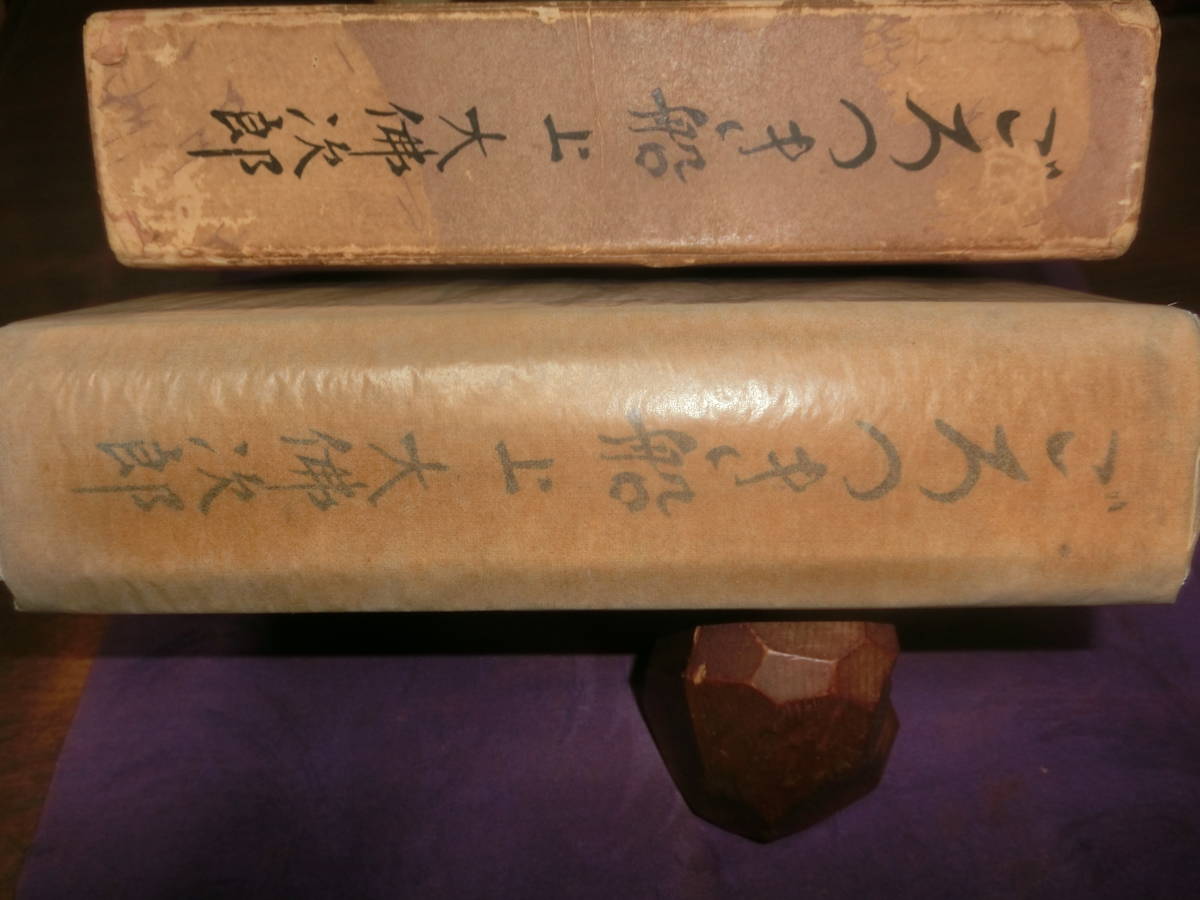 ごろつき船 上 大佛次郎
ごろつき船 上 大佛次郎